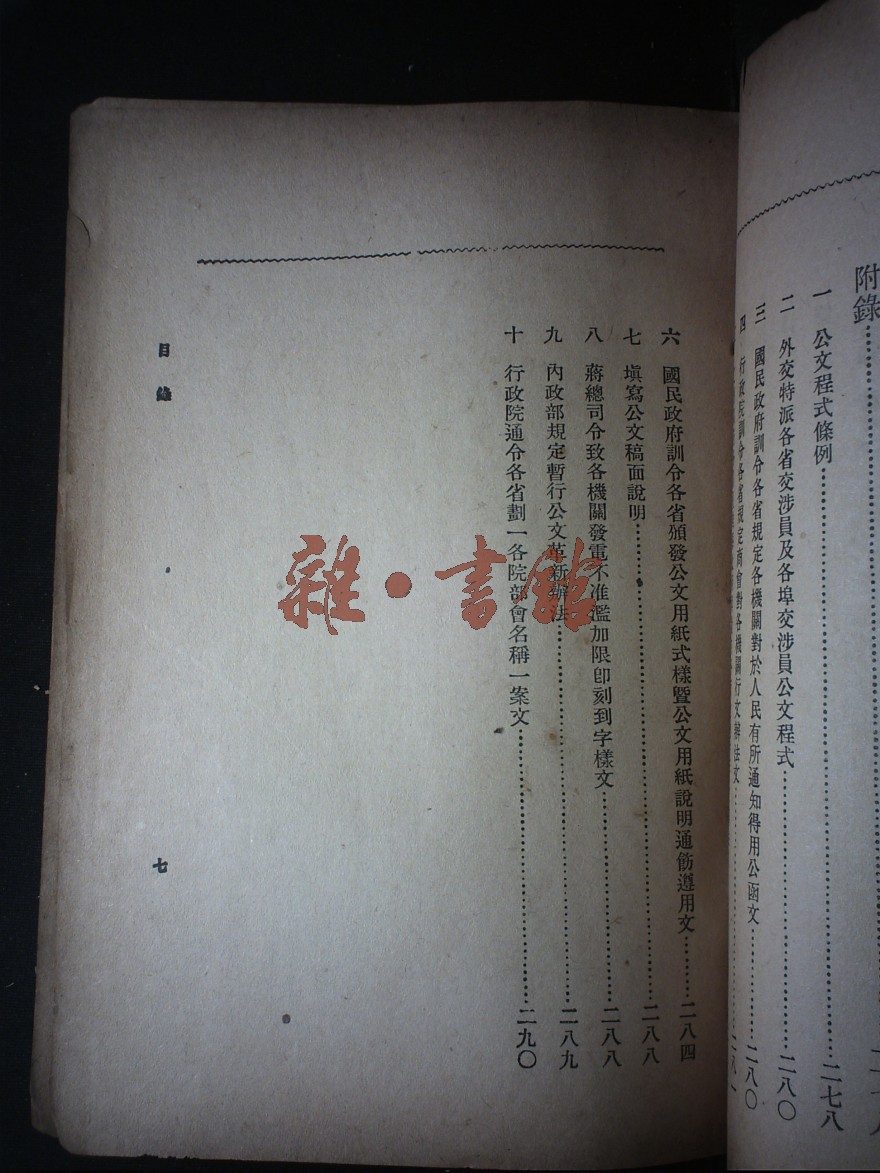 附錄
一 公文程式條例 二七八
二 外交特派各省交涉員及各埠交涉員公文程式 二八〇
三 國民政府訓令各省規定各機關對於人民有所通知得用公函文 二八〇
四 行政院訓令各省規定商會對各機關行文辦法文
六 國民政府訓令各省頒發公文用紙式樣暨公文用紙說明通飭遵用文 二八四
七 填寫公文稿面說明 二八八
八 蔣總司令致各機關發電不准濫加限卽刻到字樣文 二八八
九 內政部規定暫行公文革新辦法 二八九
十 行政院通令各省劃一各院部會名稱一案文 二九〇
目錄
七
雜·書館